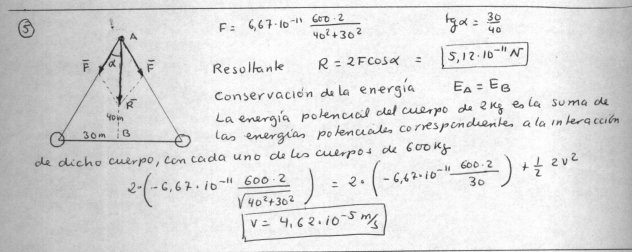 5
A
F̄ α F̄
R̄
40m
30m B
F = 6,67·10⁻¹¹ 600·2 / 40²+30²
tg α = 30/40
Resultante R = 2Fcosα = 5,12·10⁻¹¹ N
Conservación de la energía E_A = E_B
La energía potencial del cuerpo de 2Kg es la suma de
las energías potenciales correspondientes a la interacción
de dicho cuerpo, con cada uno de los cuerpos de 600Kg
2·(-6,67·10⁻¹¹ 600·2 / √40²+30²) = 2·(-6,67·10⁻¹¹ 600·2 / 30) + 1/2 2v²
v = 4,62·10⁻⁵ m/s